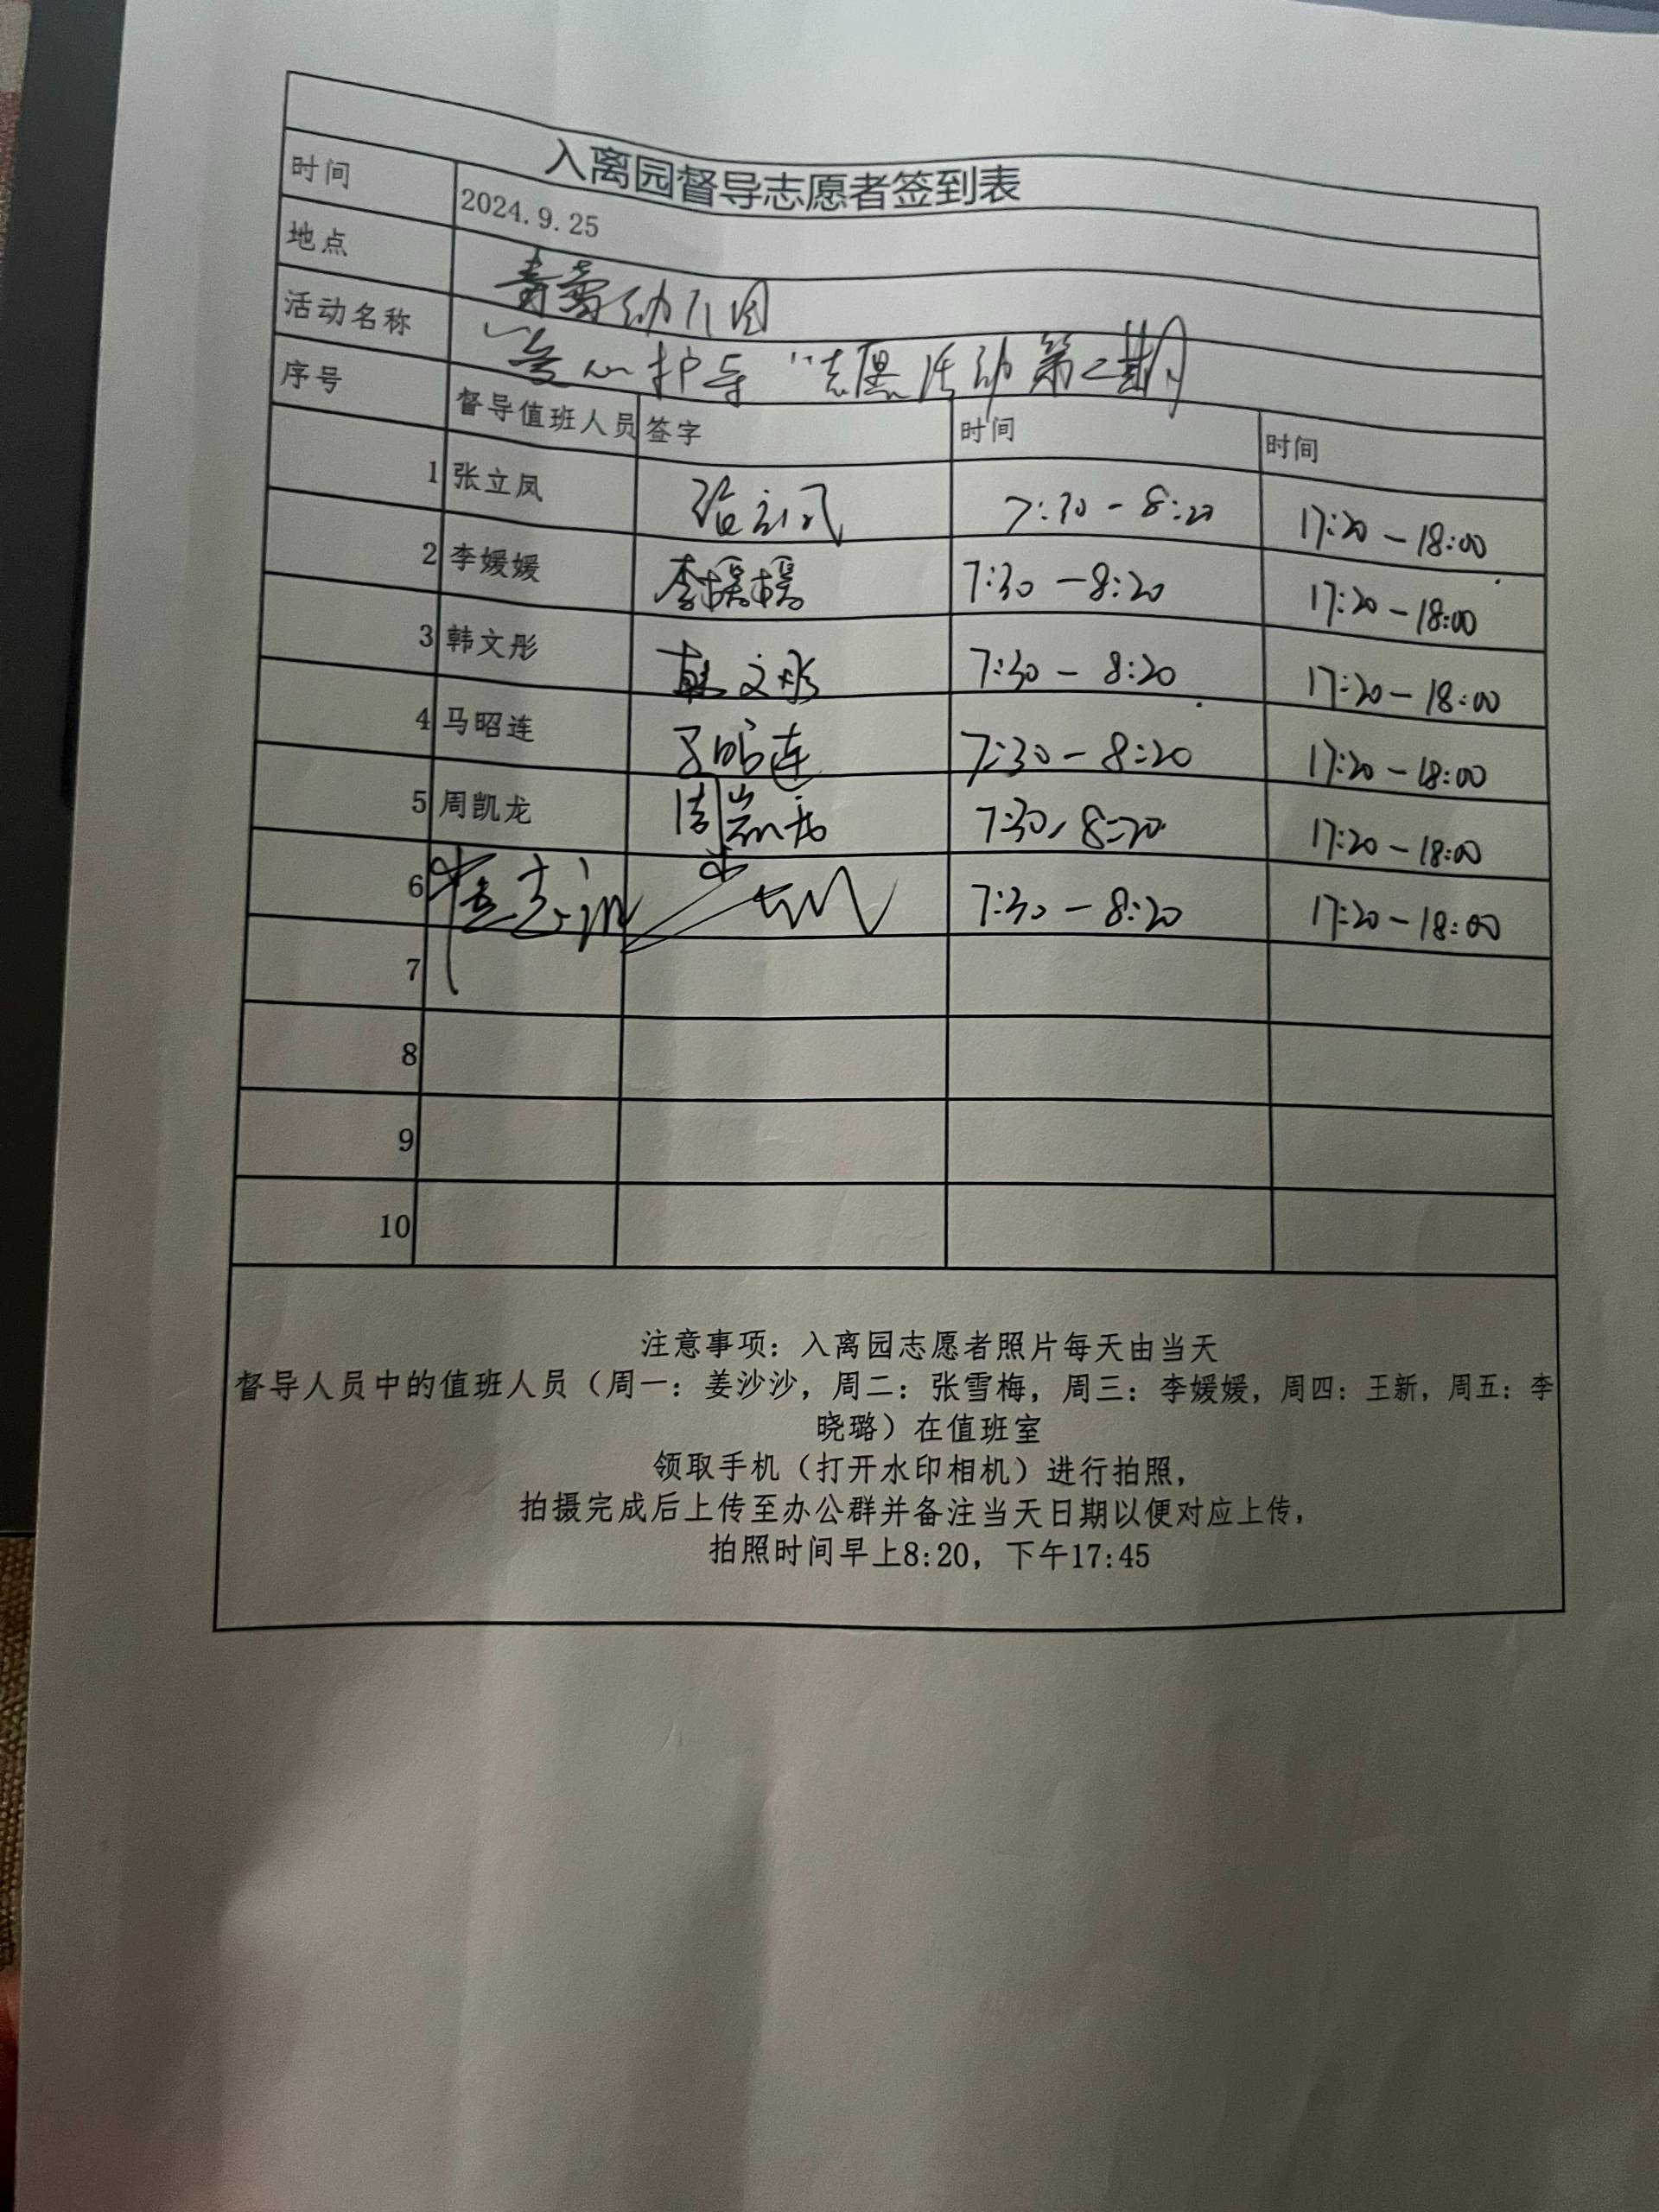 入离园督导志愿者签到表
时间 2024.9.25
地点 青蕾幼儿园
活动名称 "爱心护导"志愿活动第二期
序号 督导值班人员 签字 时间 时间
1 张立凤 张立凤 7:30-8:20 17:20-18:00
2 李媛媛 李媛媛 7:30-8:20 17:20-18:00
3 韩文彤 韩文彤 7:30-8:20 17:20-18:00
4 马昭连 马昭连 7:30-8:20 17:20-18:00
5 周凯龙 周凯龙 7:30-8:20 17:20-18:00
6 7:30-8:20 17:20-18:00
7
8
9
10
注意事项：入离园志愿者照片每天由当天
督导人员中的值班人员（周一：姜沙沙，周二：张雪梅，周三：李媛媛，周四：王新，周五：李
晓璐）在值班室
领取手机（打开水印相机）进行拍照，
拍摄完成后上传至办公群并备注当天日期以便对应上传，
拍照时间早上8:20，下午17:45